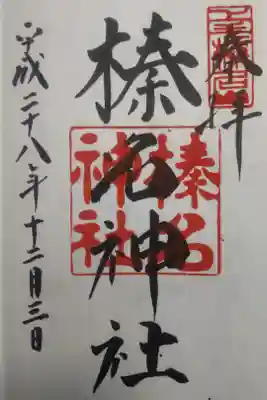 奉拝
榛名神社
榛名神社
平成二十八年十二月三日